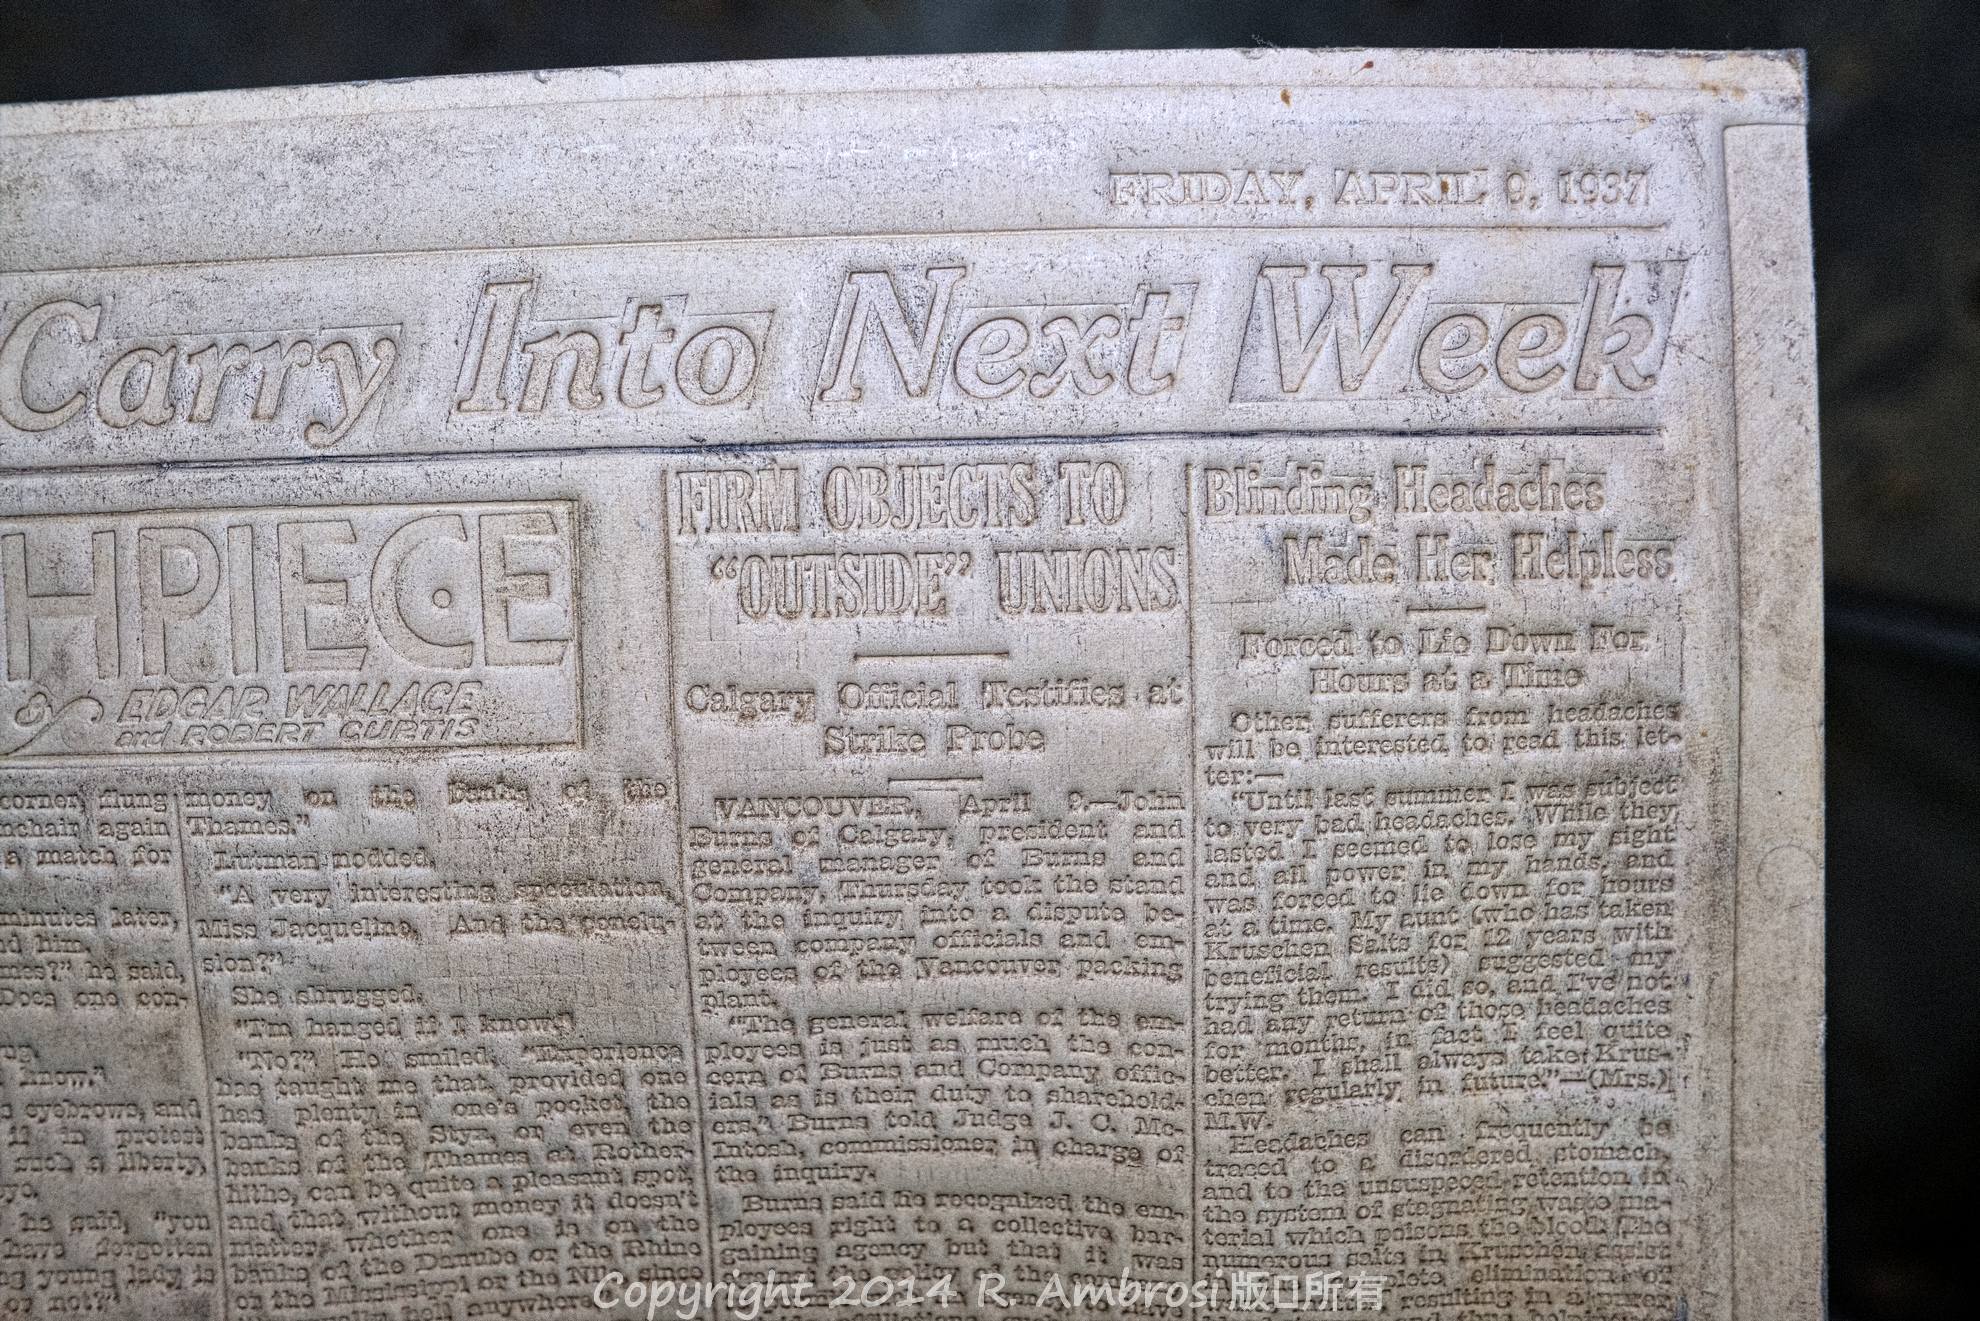 FRIDAY, APRIL 9, 1937
Carry Into Next Week
HPIECE
EDGAR WALLACE
and ROBERT CURTIS
corner, flung
nchair again
a match for
minutes later,
nd him.
mes?" he said,
Does one con-
ug.
know."
s eyebrows, and
if in protest
such a liberty,
eye.
he said, "you
have forgotten
ng young lady is
or not?"
money on the banks of the
Thames."
Lutman nodded.
"A very interesting speculation,
Miss Jacqueline. And the conclu-
sion?"
She shrugged.
"I'm hanged if I know."
"No?" He smiled. "Experience
has taught me that, provided one
has plenty in one's pocket, the
banks of the Styx, or even the
banks of the Thames at Rother-
hithe, can be quite a pleasant spot,
and that without money it doesn't
matter whether one is on the
banks of the Danube or the Rhine
or the Mississippi or the Nile, since
hell anywhere
FIRM OBJECTS TO
"OUTSIDE" UNIONS
Calgary Official Testifies at
Strike Probe
VANCOUVER, April 9.—John
Burns of Calgary, president and
general manager of Burns and
Company, Thursday took the stand
at the inquiry into a dispute be-
tween company officials and em-
ployees of the Vancouver packing
plant.
"The general welfare of the em-
ployees is just as much the con-
cern of Burns and Company offic-
ials as is their duty to sharehold-
ers," Burns told Judge J. C. Mc-
Intosh, commissioner in charge of
the inquiry.
Burns said he recognized the em-
ployees right to a collective bar-
gaining agency but that it was
the policy of the
Blinding Headaches
Made Her Helpless
Forced to Lie Down For
Hours at a Time
Other sufferers from headaches
will be interested to read this let-
ter:—
"Until last summer I was subject
to very bad headaches. While they
lasted I seemed to lose my sight
and all power in my hands, and
was forced to lie down for hours
at a time. My aunt (who has taken
Kruschen Salts for 12 years with
beneficial results) suggested my
trying them. I did so, and I've not
had any return of those headaches
for months, in fact I feel quite
better. I shall always take Krus-
chen regularly in future."—(Mrs.)
M.W.
Headaches can frequently be
traced to a disordered stomach,
and to the unsuspeced retention in
the system of stagnating waste ma-
terial which poisons the blood. The
numerous salts in Kruschen assist
elimination of
resulting in a purer
Copyright 2014 R. Ambrosi 版 所有